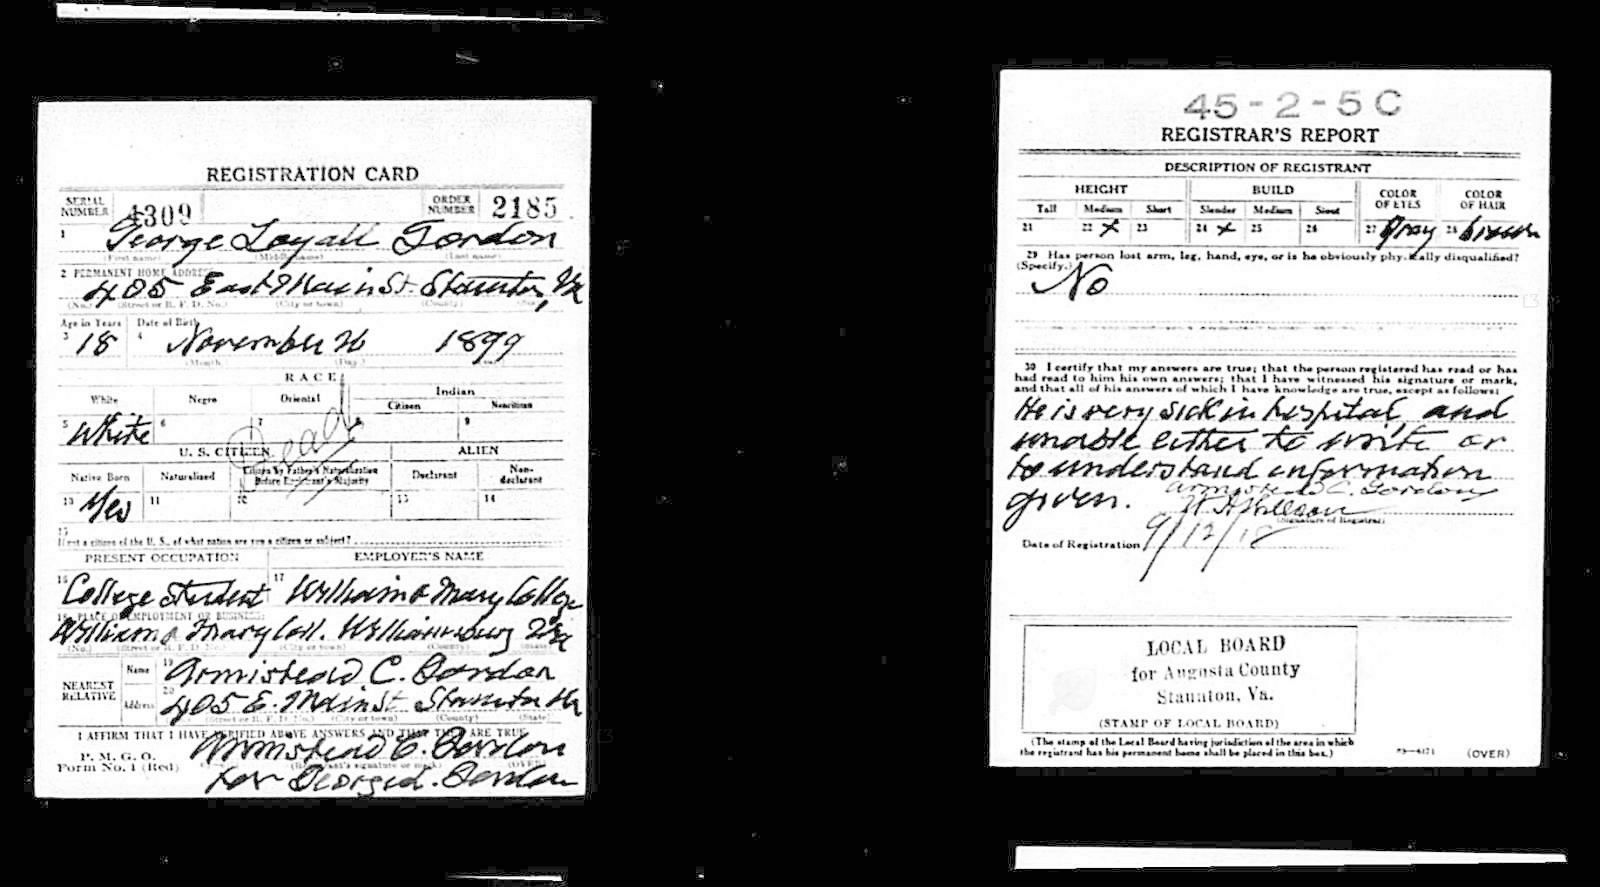 REGISTRATION CARD
SERIAL NUMBER 4309 ORDER NUMBER 2185
1 George Loyall Gordon
(First name) (Middle name) (Last name)
2 PERMANENT HOME ADDRESS
405 East Main St. Staunton, Va
(No.) (Street or R. F. D. No.) (City or town) (County) (State)
Age in Years Date of Birth
3 18 4 November 26 1899
(Month) (Day)
RACE
White Negro Oriental Indian
Citizen Noncitizen
5 White 6 7 8 9
Dead
U. S. CITIZEN ALIEN
Native Born Naturalized Citizen by Father's Naturalization Before Registrant's Majority Declarant Non-declarant
10 Yes 11 12 13 14
15 If not a citizen of the U. S., of what nation are you a citizen or subject?
PRESENT OCCUPATION EMPLOYER'S NAME
16 College Student 17 William & Mary College
18 PLACE OF EMPLOYMENT OR BUSINESS:
William & Mary Coll. Williamsburg Va
(No.) (Street or R. F. D. No.) (City or town) (County) (State)
NEAREST RELATIVE Name 19 Armistead C. Gordon
Address 20 405 E. Main St Staunton Va
(Street or R. F. D. No.) (City or town) (County) (State)
I AFFIRM THAT I HAVE VERIFIED ABOVE ANSWERS AND THAT THEY ARE TRUE
P. M. G. O.
Form No. 1 (Red) Armistead C. Gordon
(Registrant's signature or mark) (OVER)
for George L. Gordon
45-2-5 C
REGISTRAR'S REPORT
DESCRIPTION OF REGISTRANT
HEIGHT BUILD COLOR OF EYES COLOR OF HAIR
Tall Medium Short Slender Medium Stout
21 22 x 23 24 x 25 26 27 Gray 28 brown
29 Has person lost arm, leg, hand, eye, or is he obviously physically disqualified?
(Specify.) No
30 I certify that my answers are true; that the person registered has read or has
had read to him his own answers; that I have witnessed his signature or mark,
and that all of his answers of which I have knowledge are true, except as follows:
He is very sick in hospital, and
unable either to write or
to understand information
given. Armistead C. Gordon
(Signature of Registrar)
Date of Registration 9/12/18
LOCAL BOARD
for Augusta County
Staunton, Va.
(STAMP OF LOCAL BOARD)
(The stamp of the Local Board having jurisdiction of the area in which
the registrant has his permanent home shall be placed in this box.)
03—6171 (OVER)